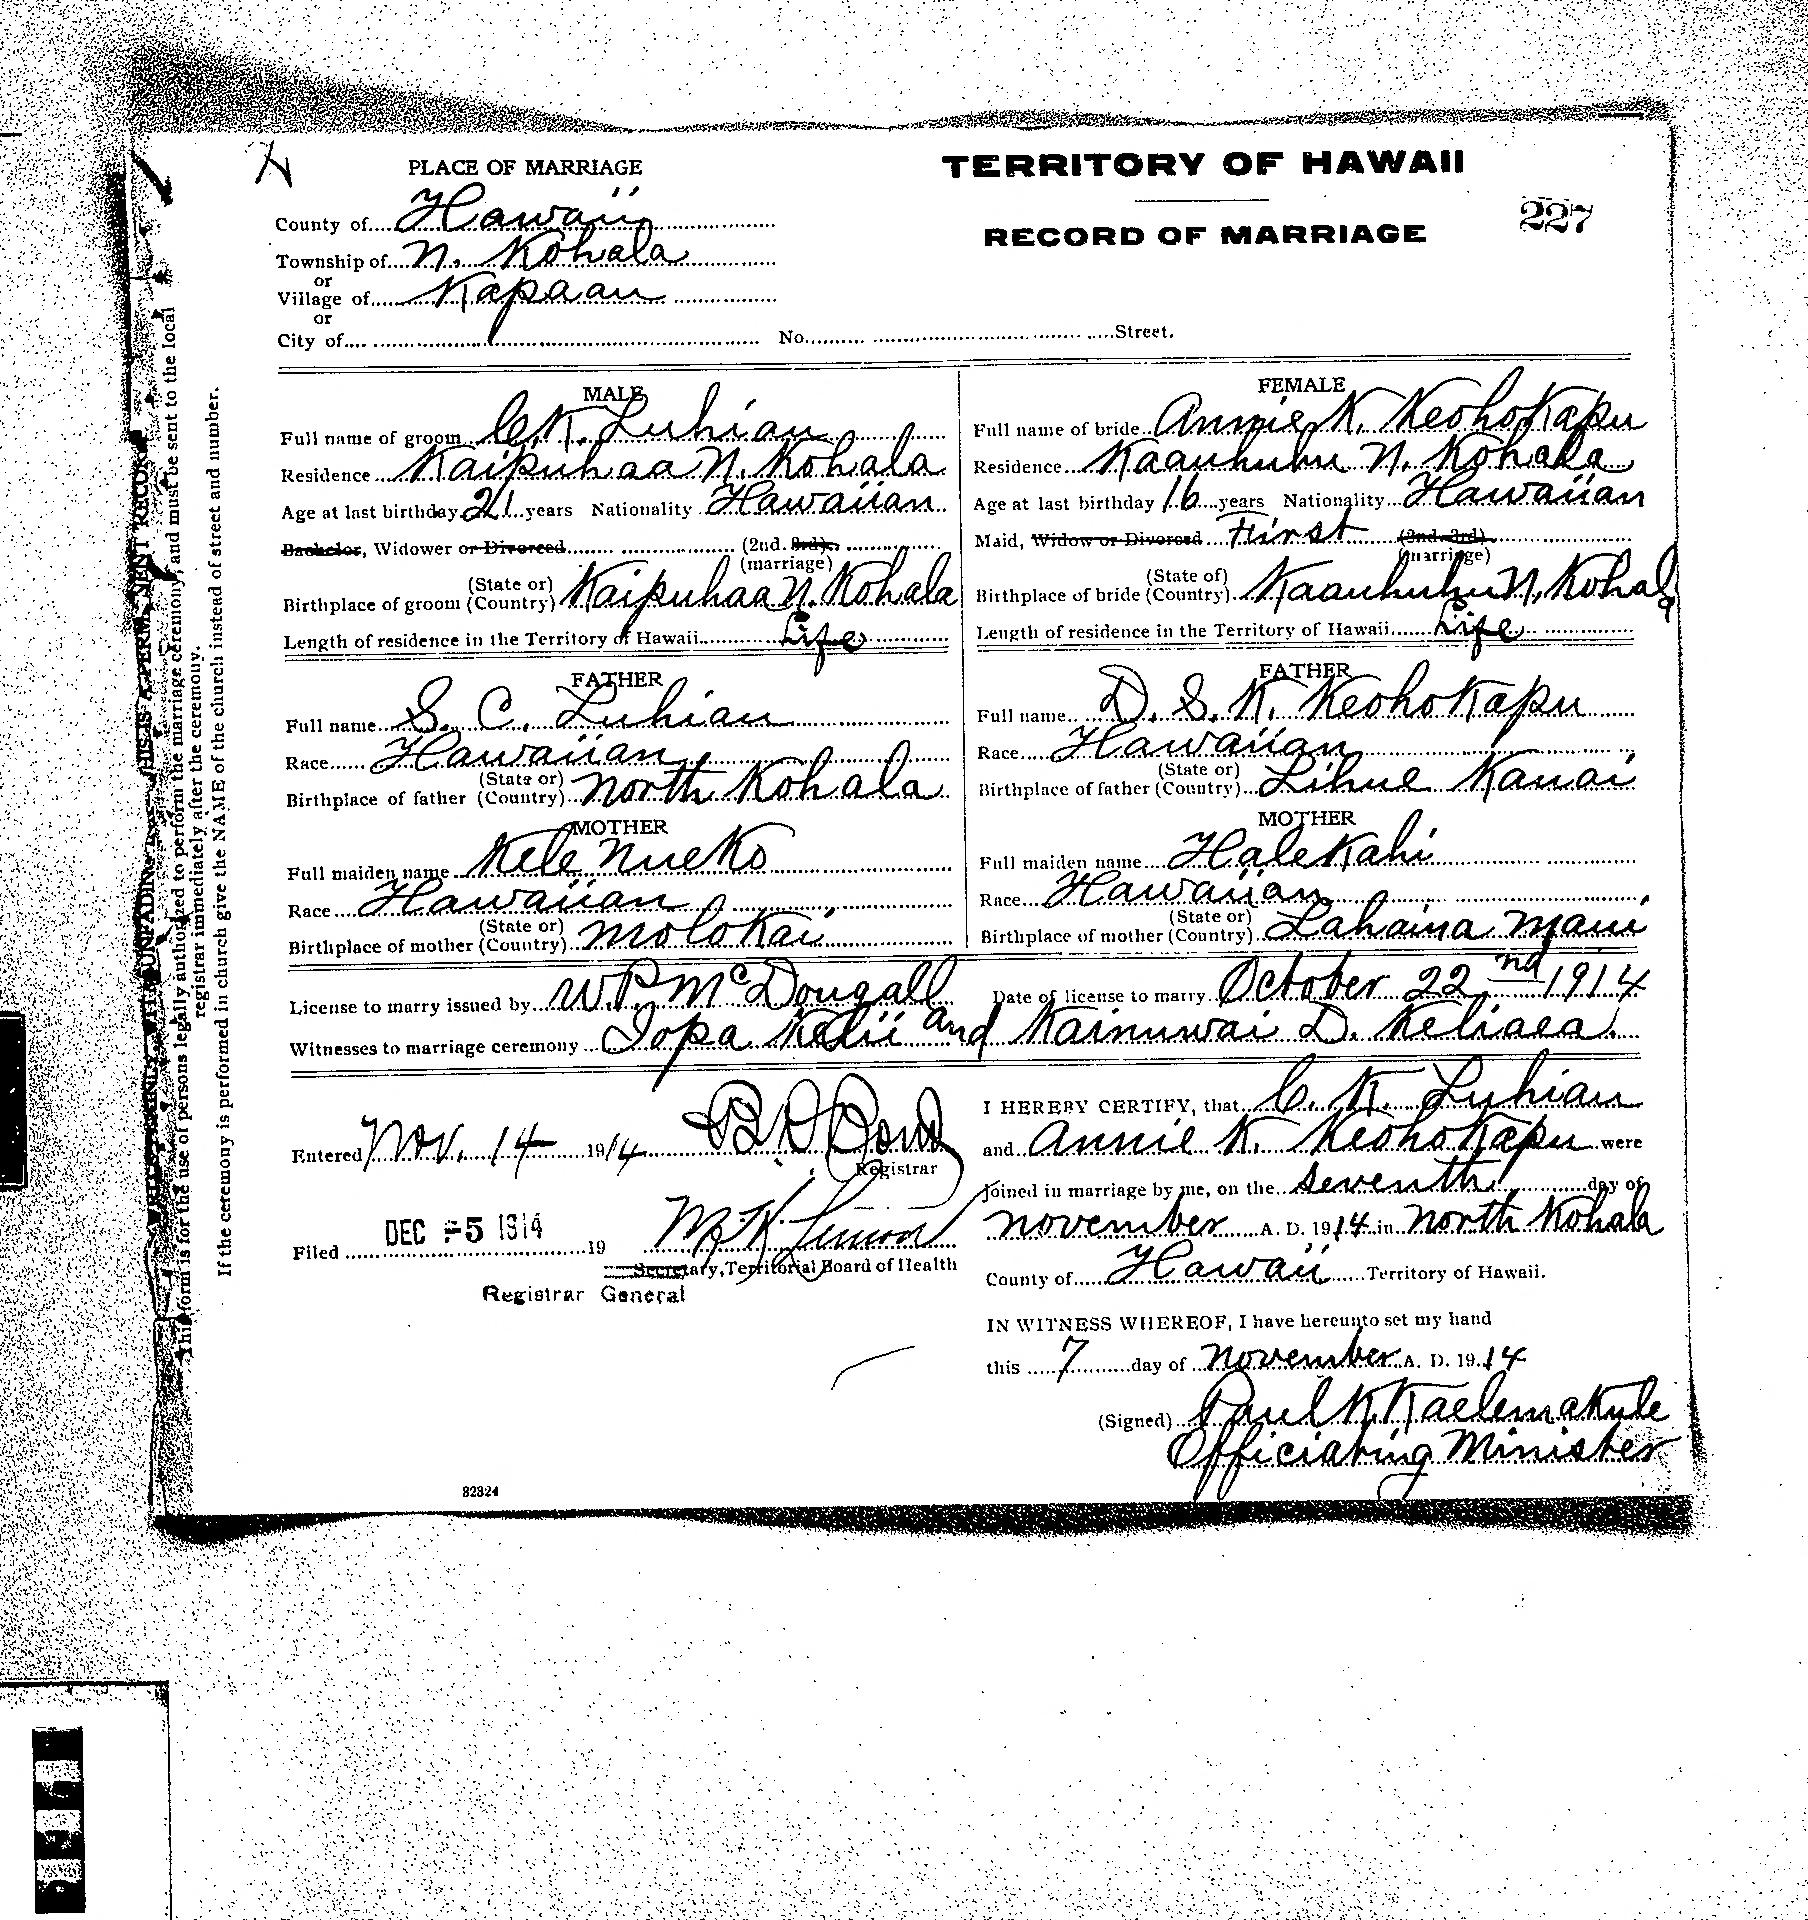 PLACE OF MARRIAGE
TERRITORY OF HAWAII
RECORD OF MARRIAGE
227
County of Hawaii
Township of N. Kohala
or
Village of Kapaau
or
City of No. Street.
MALE
Full name of groom C. K. Luhiau
Residence Kaipuhaa N. Kohala
Age at last birthday 21 years Nationality Hawaiian
Bachelor, Widower or Divorced (2nd. 3rd).
(marriage)
Birthplace of groom (State or) (Country) Kaipuhaa N. Kohala
Length of residence in the Territory of Hawaii Life
FATHER
Full name S. C. Luhiau
Race Hawaiian
Birthplace of father (State or) (Country) North Kohala
MOTHER
Full maiden name Kele Nueko
Race Hawaiian
Birthplace of mother (State or) (Country) Molokai
FEMALE
Full name of bride Annie K. Keohokapu
Residence Kaauhuhu N. Kohala
Age at last birthday 16 years Nationality Hawaiian
Maid, Widow or Divorced First (2nd. 3rd)
(marriage)
Birthplace of bride (State of) (Country) Kaauhuhu N. Kohala
Length of residence in the Territory of Hawaii Life
FATHER
Full name D. S. K. Keohokapu
Race Hawaiian
Birthplace of father (State or) (Country) Lihue Kauai
MOTHER
Full maiden name Halekahi
Race Hawaiian
Birthplace of mother (State or) (Country) Lahaina Maui
License to marry issued by W. P. McDougall Date of license to marry October 22nd 1914
Witnesses to marriage ceremony Iopa Kelii and Kainuwai D. Keliaea.
Entered Nov. 14 1914
Registrar
Filed DEC -5 1914 19
Secretary, Territorial Board of Health
Registrar General
I HEREBY CERTIFY, that C. K. Luhiau
and Annie K. Keohokapu were
joined in marriage by me, on the seventh day of
November A. D. 1914 in North Kohala
County of Hawaii Territory of Hawaii.
IN WITNESS WHEREOF, I have hereunto set my hand
this 7 day of November A. D. 1914
(Signed) Paul K. Kaelemakule
Officiating Minister
82324
This form is for the use of persons legally authorized to perform the marriage ceremony, and must be sent to the local
registrar immediately after the ceremony.
If the ceremony is performed in church give the NAME of the church instead of street and number.